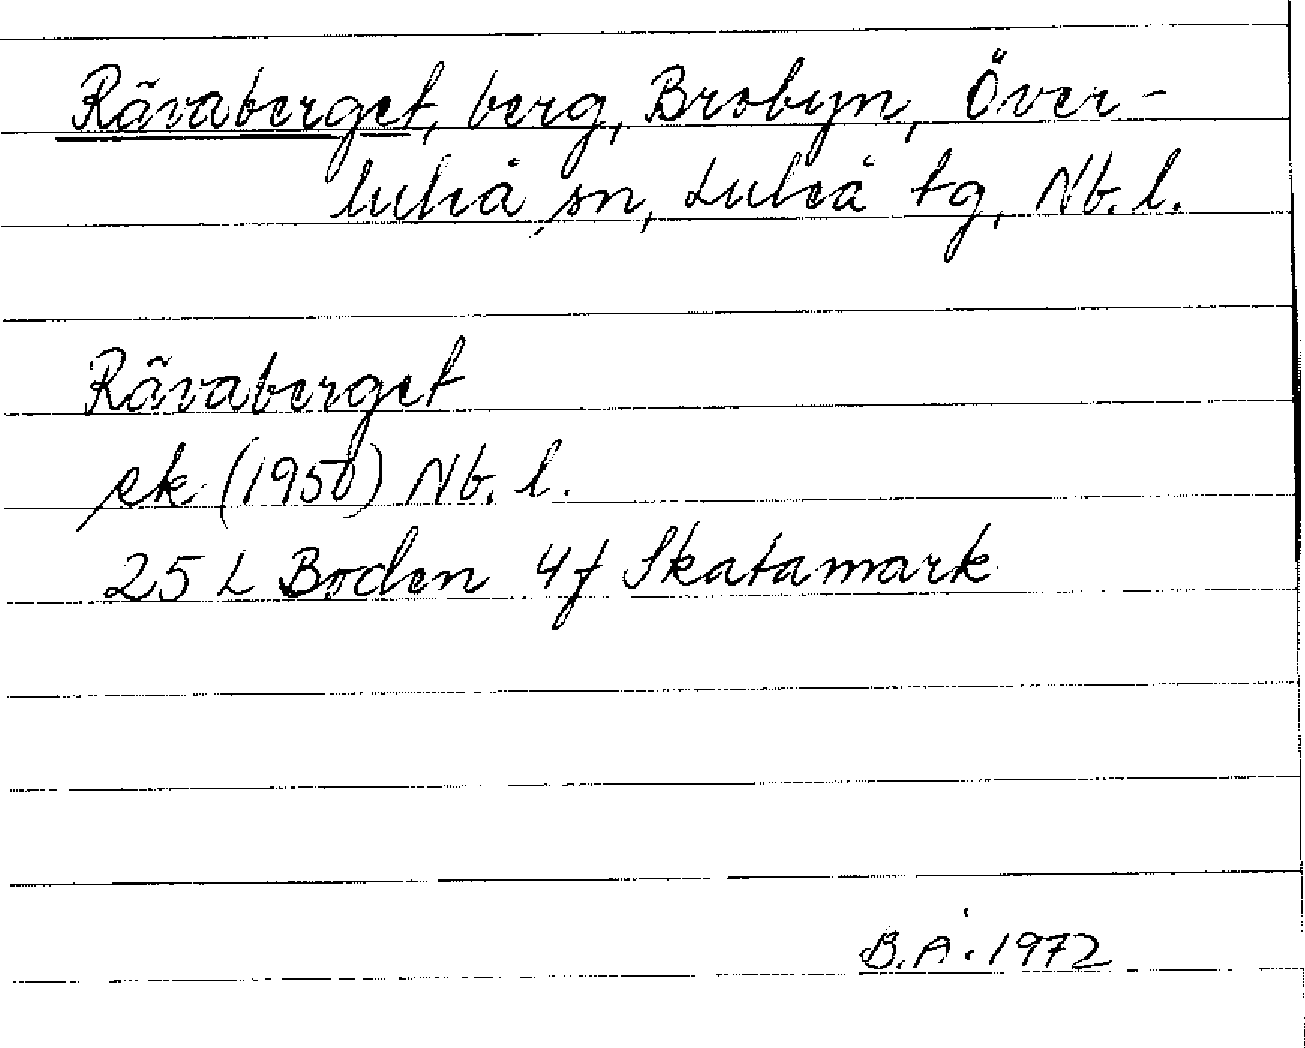 Rävaberget, berg, Brobyn, Över-
luleå sn, Luleå tg, Nb. l.
Rävaberget
ek (1950) Nb. l.
25 L Boden 4f Skatamark
B.Å. 1972